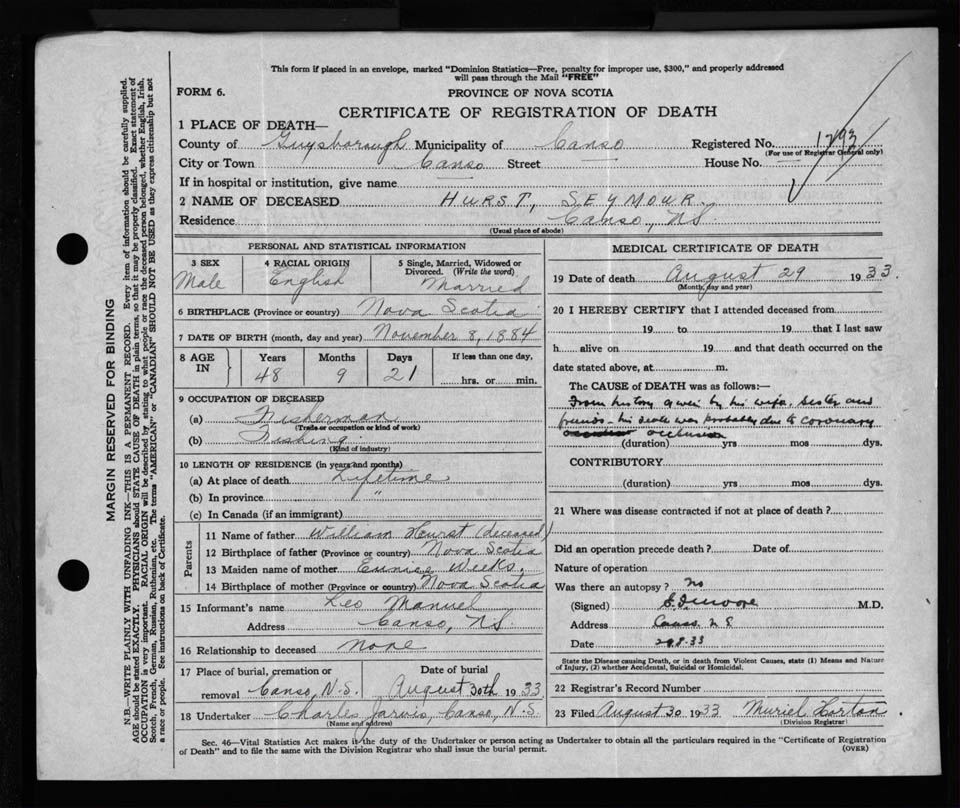 This form if placed in an envelope, marked "Dominion Statistics—Free, penalty for improper use, $300," and properly addressed
will pass through the Mail "FREE"
FORM 6.
PROVINCE OF NOVA SCOTIA
CERTIFICATE OF REGISTRATION OF DEATH
1 PLACE OF DEATH—
County of Guysborough Municipality of Canso Registered No. 1793
(For use of Registrar General only)
City or Town Canso Street — House No. —
If in hospital or institution, give name —
2 NAME OF DECEASED HURST, SEYMOUR.
Residence Canso, NS
(Usual place of abode)
PERSONAL AND STATISTICAL INFORMATION
3 SEX 4 RACIAL ORIGIN 5 Single, Married, Widowed or
Divorced. (Write the word)
Male English Married
6 BIRTHPLACE (Province or country) Nova Scotia
7 DATE OF BIRTH (month, day and year) November 8, 1884
8 AGE IN Years Months Days If less than one day,
48 9 21 hrs. or min.
9 OCCUPATION OF DECEASED
(a) Fisherman
(Trade or occupation or kind of work)
(b) Fishing
(Kind of industry)
10 LENGTH OF RESIDENCE (in years and months)
(a) At place of death Lifetime
(b) In province "
(c) In Canada (if an immigrant)
Parents
11 Name of father William Hurst (deceased)
12 Birthplace of father (Province or country) Nova Scotia
13 Maiden name of mother Eunice Weeks.
14 Birthplace of mother (Province or country) Nova Scotia
15 Informant's name Leo Manuel
Address Canso, NS
16 Relationship to deceased None
17 Place of burial, cremation or Date of burial
removal Canso, N.S. August 30th 1933
18 Undertaker Charles Jarvis, Canso, N.S
(Name and address)
MEDICAL CERTIFICATE OF DEATH
19 Date of death August 29 1933.
(Month, day and year)
20 I HEREBY CERTIFY that I attended deceased from
19 to 19 that I last saw
h alive on 19 and that death occurred on the
date stated above, at m.
The CAUSE of DEATH was as follows:—
From history given by his wife, sister and
friends - his death was probably due to coronary
occlusion
(duration) yrs mos dys.
CONTRIBUTORY
(duration) yrs mos dys.
21 Where was disease contracted if not at place of death?
Did an operation precede death? Date of
Nature of operation
Was there an autopsy? no
(Signed) M.D.
Address Canso N S
Date 29.8.33
State the Disease causing Death, or in death from Violent Causes, state (1) Means and Nature
of Injury, (2) whether Accidental, Suicidal or Homicidal.
22 Registrar's Record Number
23 Filed August 30 1933 Muriel Horton
(Division Registrar)
Sec. 46—Vital Statistics Act makes it the duty of the Undertaker or person acting as Undertaker to obtain all the particulars required in the "Certificate of Registration
of Death" and to file the same with the Division Registrar who shall issue the burial permit. (OVER)
MARGIN RESERVED FOR BINDING
N.B.—WRITE PLAINLY WITH UNFADING INK—THIS IS A PERMANENT RECORD. Every item of information should be carefully supplied.
AGE should be stated EXACTLY. PHYSICIANS should STATE CAUSE OF DEATH in plain terms, so that it may be properly classified. Exact statement of
OCCUPATION is very important. RACIAL ORIGIN will be described by stating to what people or race the deceased person belonged, whether English, Irish,
Scotch, French, German, Russian, Ruthenian, etc. The terms "AMERICAN" or "CANADIAN" SHOULD NOT BE USED as they express citizenship but not
a race or people. See instructions on back of Certificate.